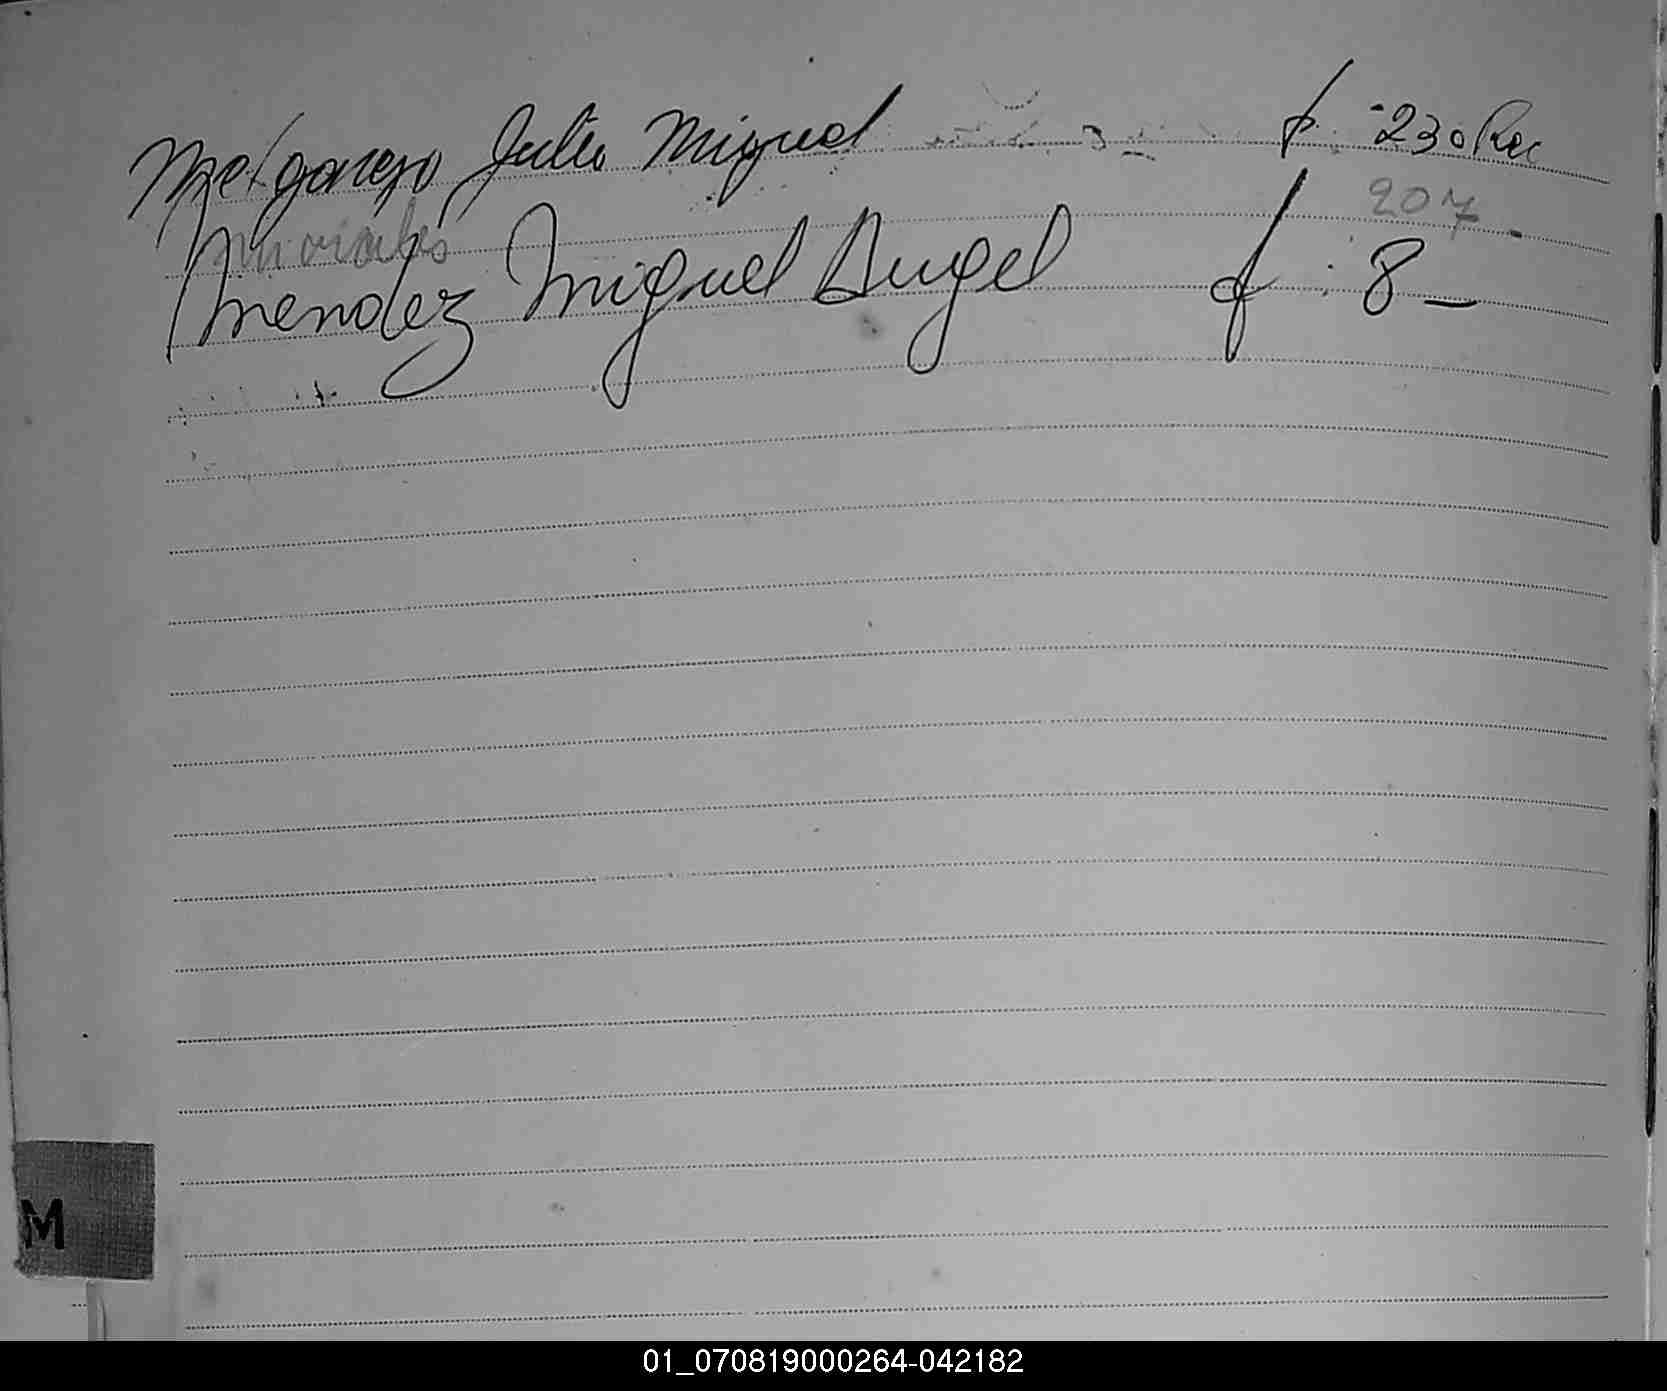 Melgarejo Julio Miguel f. 230 Rec
Morales 207
Mendez Miguel Angel f. 8
M
01_070819000264-042182